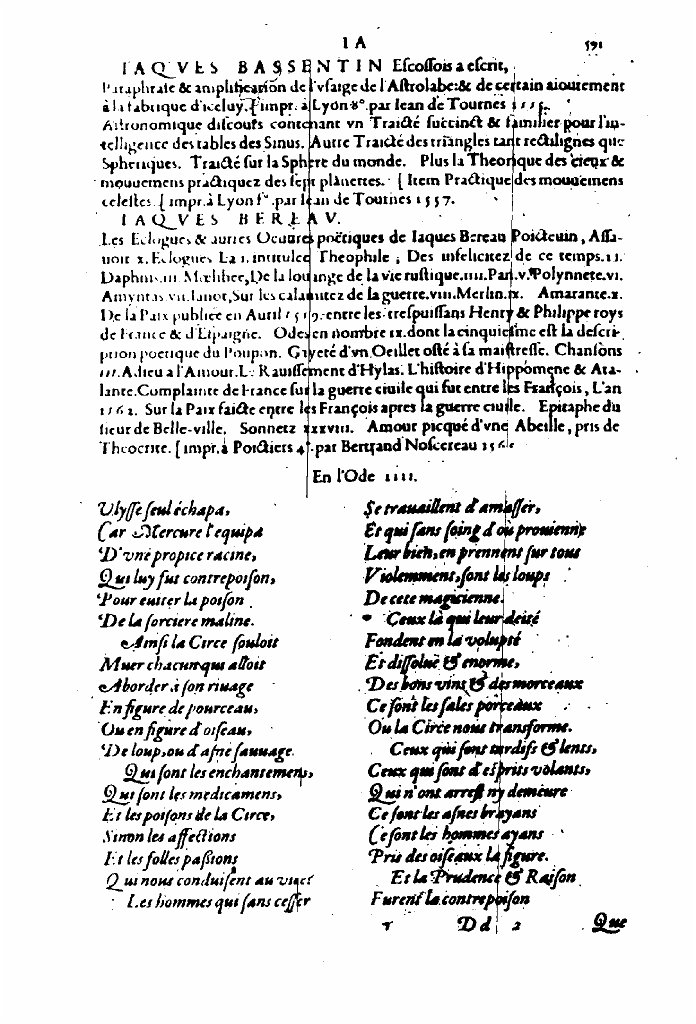 IA 591
IAQVES BASSENTIN Escossois a escrit,
Paraphrase & amplification de l'vsaige de l'Astrolabe: & de certain aioutement
à la fabrique d'iceluy. [impr. à Lyon 8°. par Iean de Tournes 1555.
Astronomique discours contenant vn Traicté succinct & familier pour l'in-
telligence des tables des Sinus. Autre Traicté des triangles tant rectilignes que
Spheriques. Traicté sur la Sphere du monde. Plus la Theorique des cieux &
mouuemens practiquez des sept planettes. [Item Practique des mouuemens
celestes. [impr. à Lyon f°. par Iean de Tournes 1557.
IAQVES BEREAV.
Les Eclogues & autres Oeuures poëtiques de Iaques Bereau Poicteuin, Assa-
uoir x. Eclogues La I. intitulee Theophile ; Des infelicitez de ce temps. II.
Daphnis. III. Mœlibee, De la louange de la vie rustique. IIII. Pan. V. Polynnete. VI.
Amyntas. VII. Ianot, Sur les calamitez de la guerre. VIII. Merlin. IX. Amarante. X.
De la Paix publiée en Auril 1559. entre les trespuissans Henry & Philippe roys
de France & d'Espaigne. Odes en nombre IX. dont la cinquiesme est la descri-
ption poetique du Poupon. Gayeté d'vn Oeillet osté à sa maistresse. Chansons
III. Adieu a l'Amour. Le Rauissement d'Hylas. L'histoire d'Hippomene & Ata-
lante. Complainte de France sur la guerre ciuile qui fut entre les François, L'an
1562. Sur la Paix faicte entre les François apres la guerre ciuile. Epitaphe du
sieur de Belle-ville. Sonnetz xxxviii. Amour picqué d'vne Abeille, pris de
Theocrite. [impr. à Poictiers 4°. par Bertrand Noscereau 156
En l'Ode IIII.
Ulysse seul échapa,
Car Mercure l'equipa
D'vne propice racine,
Qui luy fut contrepoison,
Pour euiter la poison
De la sorciere maline.
Ainsi la Circe souloit
Muer chacun qui alloit
Aborder à son riuage
En figure de pourceau,
Ou en figure d'oiseau,
De loup, ou d'asne sauuage.
Qui sont les enchantemens,
Qui sont les medicamens,
Et les poisons de la Circe,
Sinon les affections
Et les folles passions
Qui nous conduisent au vice?
Les hommes qui sans cesser
Se trauaillent d'amasser,
Et qui sans soing d'où prouienne
Leur bien, en prennent sur tous
Violemment, sont les loups
De cete magicienne.
Ceux là qui leur deité
Fondent en la volupté
Et dissoluë & enorme,
Des bons vins & des morceaux
Ce sont les sales porceaux
Ou la Circe nous transforme.
Ceux qui sont tardifs & lents,
Ceux qui sont d'esprits volants,
Qui n'ont arrest ny demeure
Ce sont les asnes brayans
Ce sont les hommes ayans
Pris des oiseaux la figure.
Et la Prudence & Raison
Furent la contrepoison
Dd 2 Que